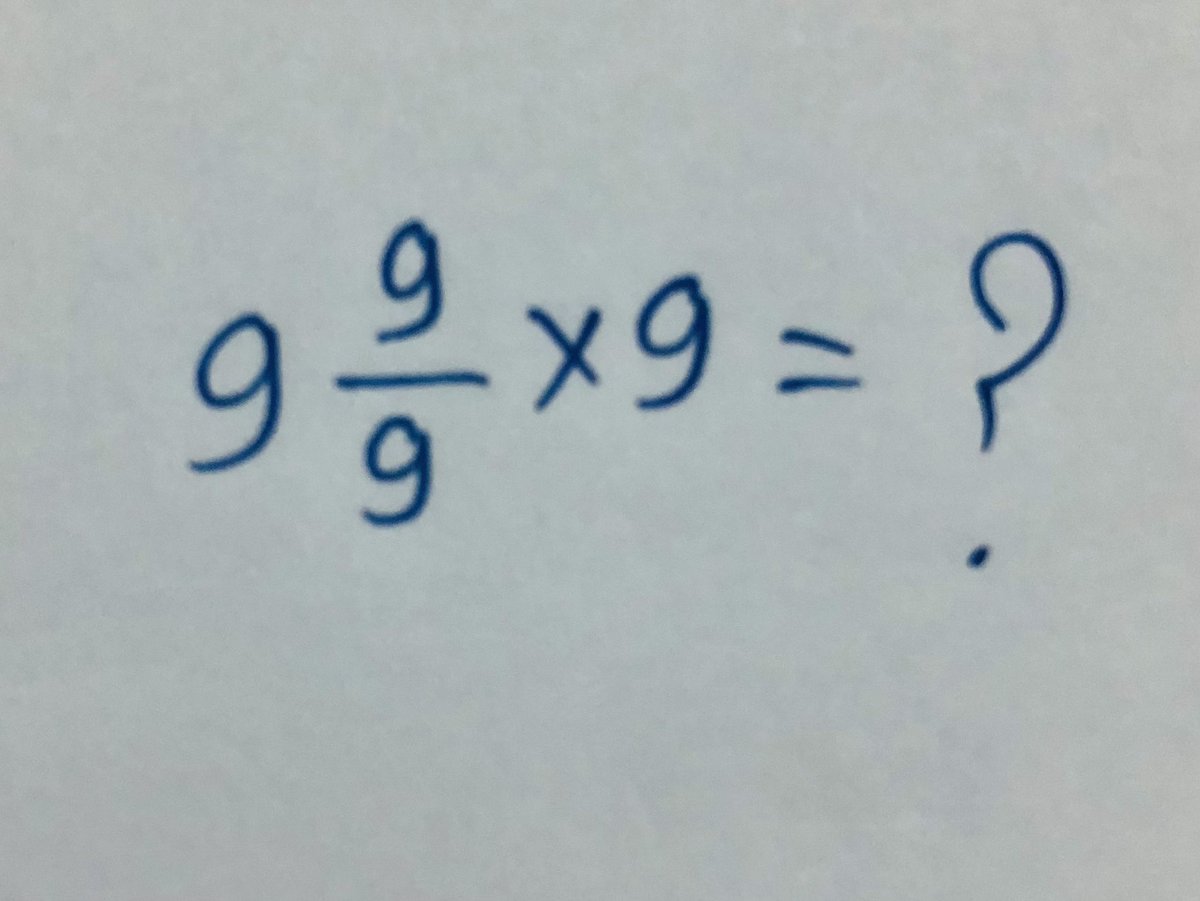 9 9/9 × 9 = ?